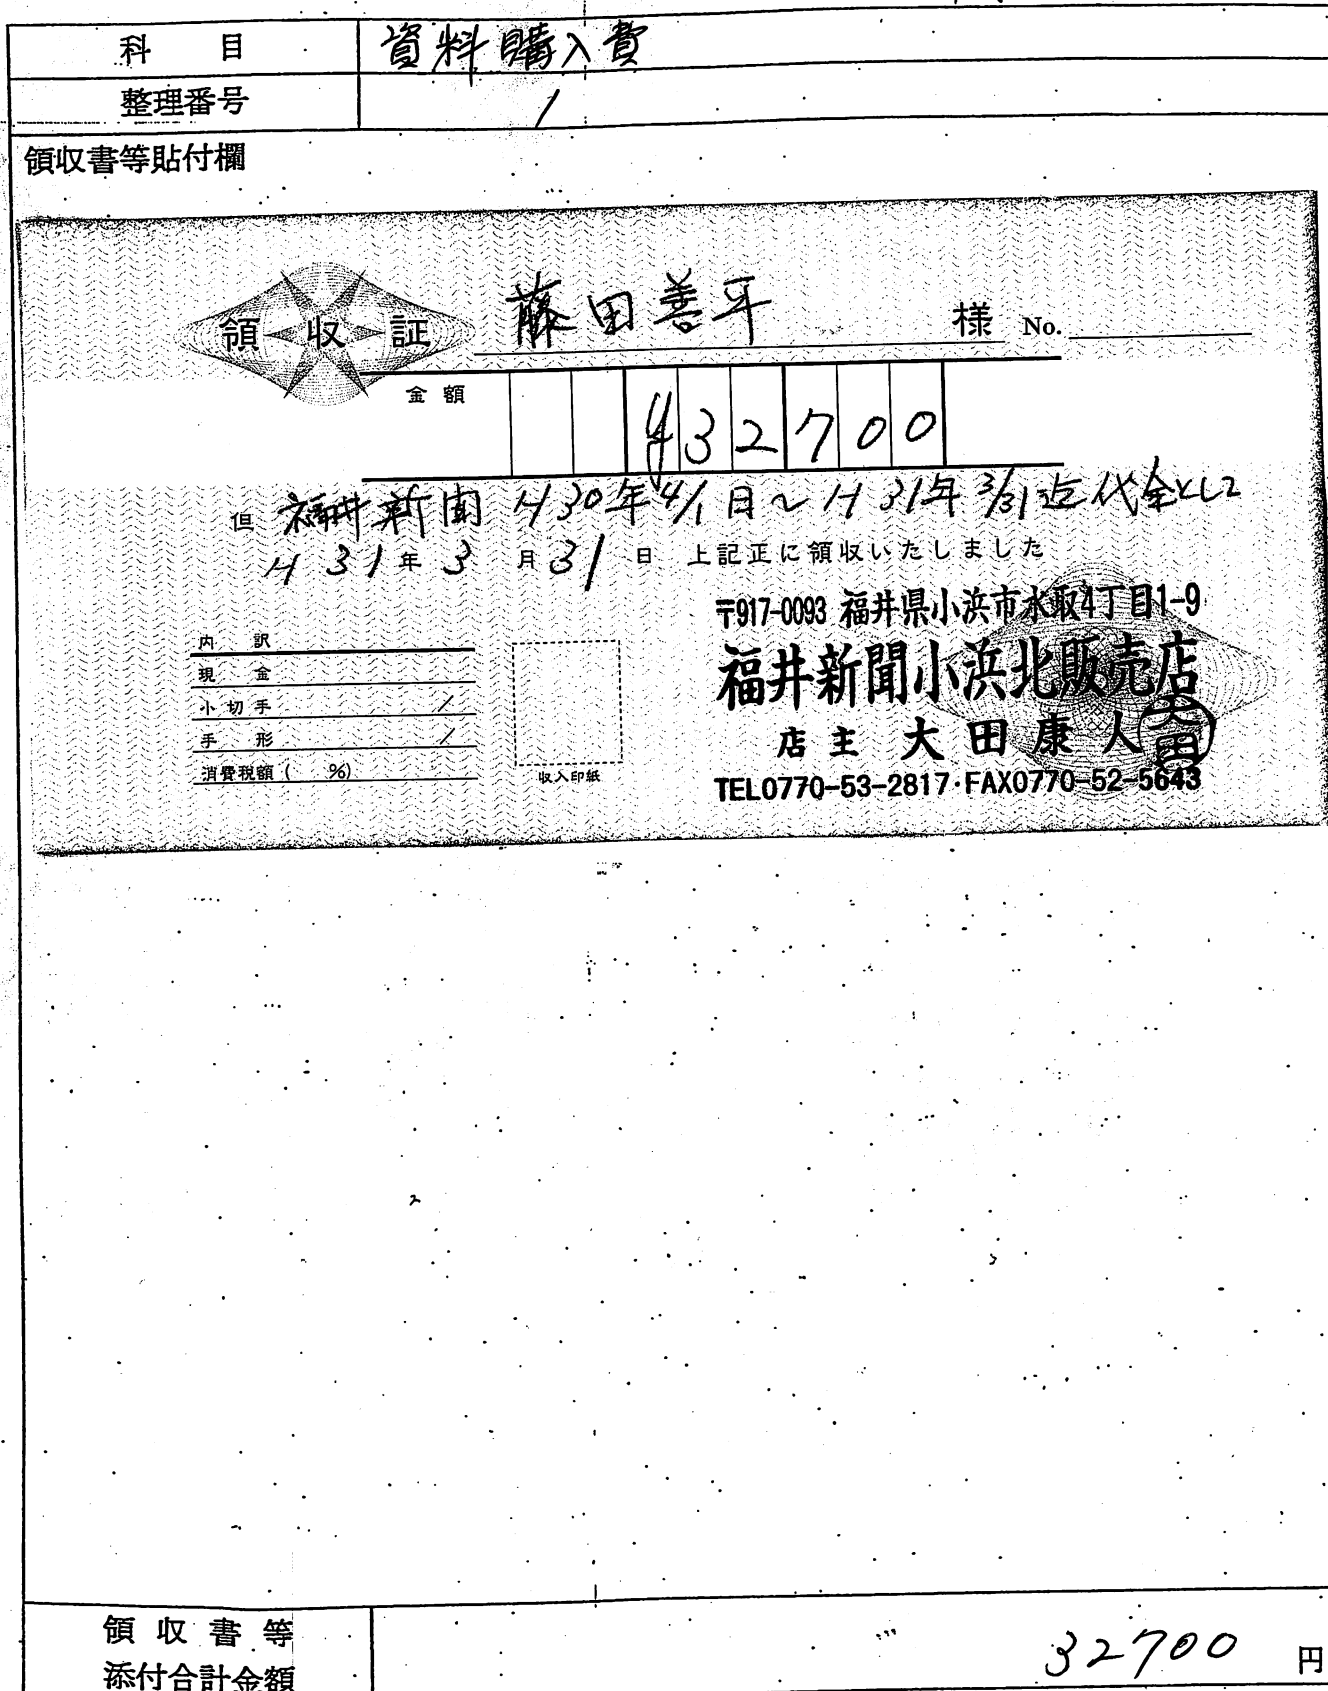 科 目 資料購入費
整理番号 1
領収書等貼付欄
領収証 藤田善平 様 No.
金額 ¥32700
但 福井新聞 H30年4/1日～H31年3/31迄代金として
H31年3月31日 上記正に領収いたしました
〒917-0093 福井県小浜市水取4丁目1-9
福井新聞小浜北販売店
店主 大田康人 大田
TEL0770-53-2817・FAX0770-52-5643
内 訳
現 金
小切手 /
手 形 /
消費税額( %)
収入印紙
領収書等
添付合計金額 32700 円